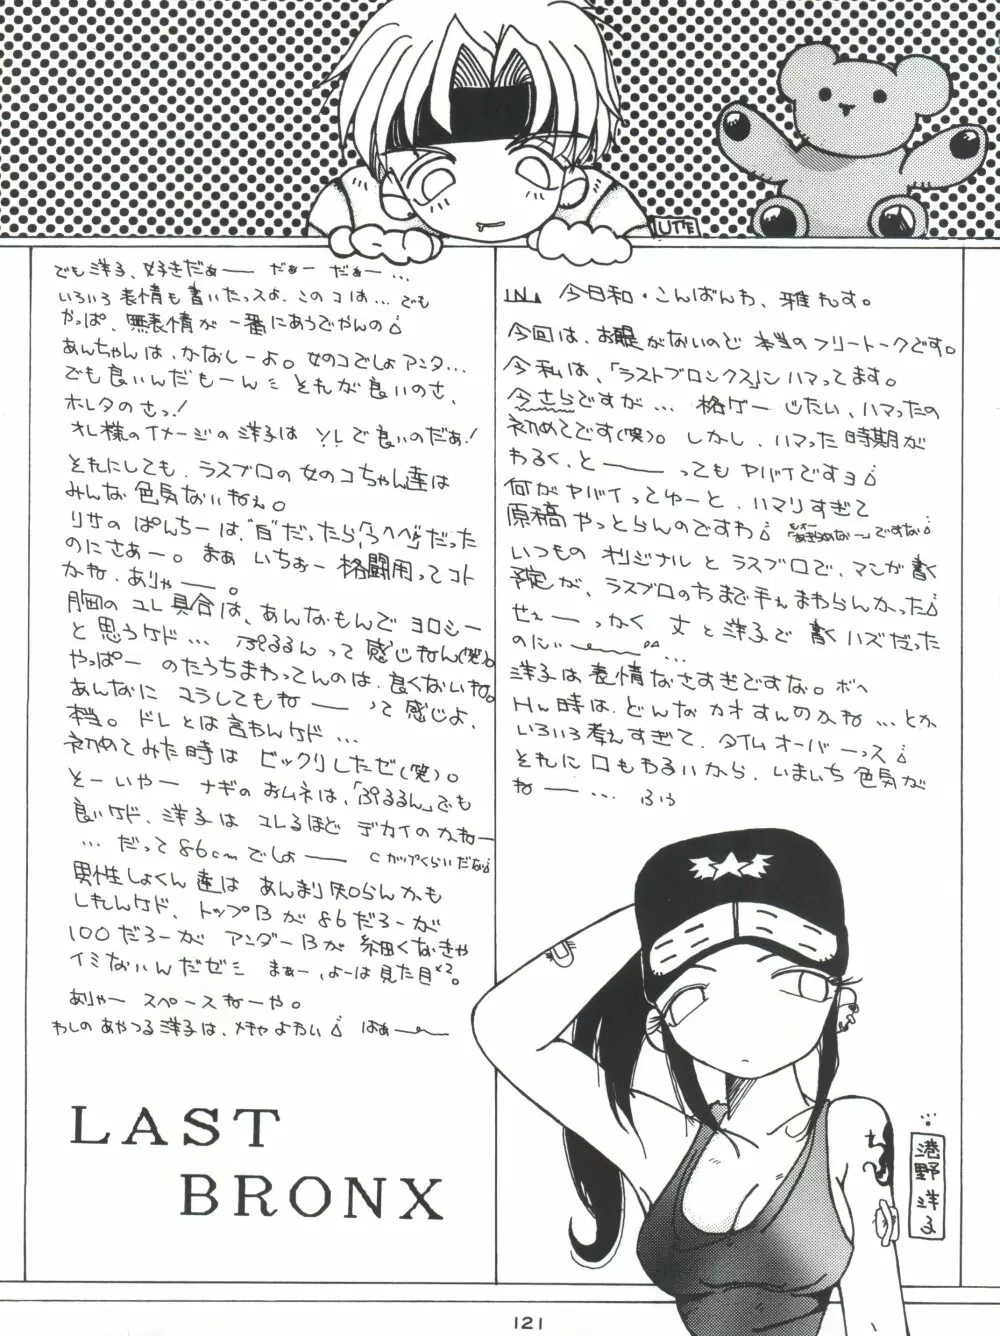 今日和・こんばんわ、雅れす。
今回は、お題がないので本当のフリートークです。
今私は、「ラストブロンクス」にハマってます。
今さらですが… 格ゲーじたい、ハマったの
初めてです(笑)。しかし、ハマった時期が
わるく、と——ってもヤバイですョ
何がヤバイってゆーと、ハマりすぎて
原稿やっとらんのですわ
いつものオリジナルとラスブロで、マンガ書く
予定が、ラスブロの方まで手ぇまわらんかった
せぇ——っかく 丈と洋子で書くハズだった
のにぃ〜…
洋子は表情なさすぎですな。ボヘ
H時は、どんなカオすんのかね…とか
いろいろ考えすぎて、タイムオーバーっス
それに口もわるいから、いまいち色気が
ね——… ふぅ
でも洋子、好きだぁ—— だぁー だぁー…
いろいろ表情も書いたっスよ、このコは…でも
やっぱ、無表情が一番にあうでやんの
あんちゃんは、かなしーよ。女のコでしょアンタ…
でも良いんだもーんミ それが良いのさ、
ホレタのさっ!
オレ様のイメージの洋子はソレで良いのだぁ!
それにしても、ラスブロの女のコちゃん達は
みんな色気ないねぇ。
リサのぱんちーは、"白"だったら
のにさぁー。まぁ いちおー格闘用ってコト
かね、ありゃ——。
胸のユレ具合は、あんなもんでヨロシー
と思うけド… ぷるるんって感じねん(笑)。
やっぱー のたうちまわってんのは、良くないね。
あんなに ユラしてもね——って感じよ、
本当。ドレとは言わんけド…
初めてみた時は ビックリしたゼ(笑)。
とーいやー ナギのおムネは、「ぷるるん」でも
良いけド、洋子は ユレるほど デカイのかねー
…だって86cmでしょ—— Cカップくらいだな
男性しょくん達は あんまり知らんかも
しれんけド、トップBが86だろーが
100だろーが アンダーBが細くなきゃ
イミないんだゼミ まぁー、よーは見た目×2。
ありゃー スペースねーや。
わしのあやつる洋子は、メチャよわい はぁ——
LAST
BRONX
港野洋子
121